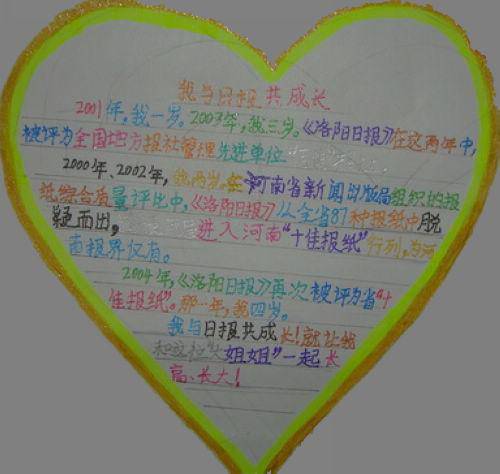 我与日报共成长
2001年,我一岁。2003年,我三岁。《洛阳日报》在这两年中,
被评为全国地方报社管理先进单位
2000年、2002年,我两岁。在河南省新闻出版局组织的报
纸综合质量评比中,《洛阳日报》从全省87种报纸中脱
颖而出, 进入河南"十佳报纸"行列,为河
南报界仅有。
2004年,《洛阳日报》再次被评为省"十
佳报纸"。那一年,我四岁。
我与日报共成长!就让我
和这位"大姐姐"一起长
高、长大!